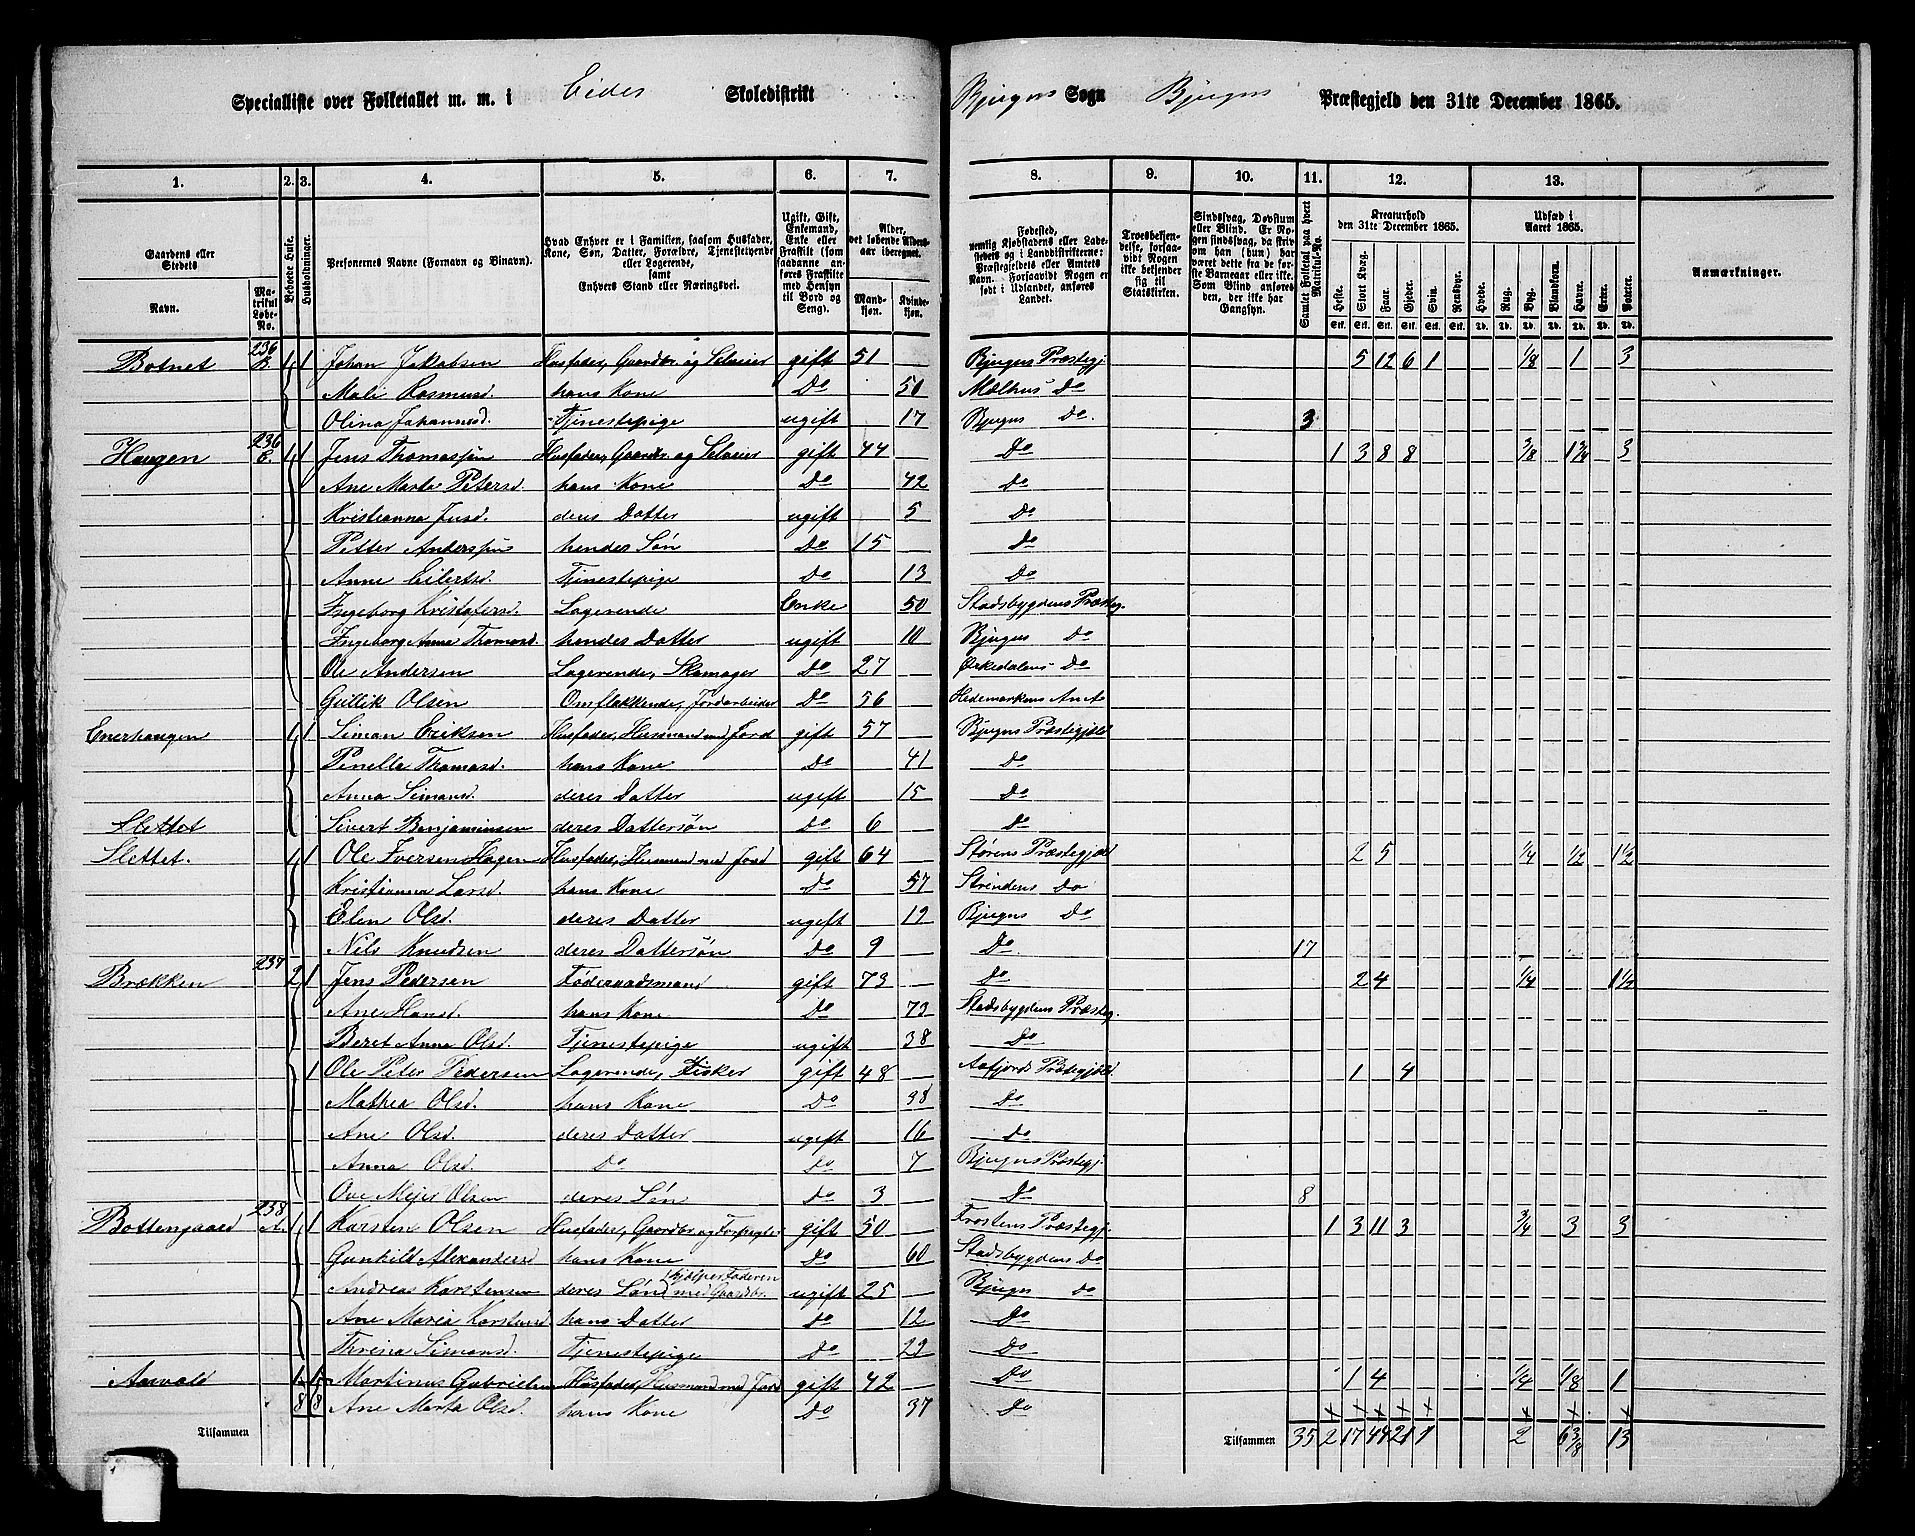 Specialliste over Folketallet m. m. i Eides Skoledistrikt Bjugns Sogn Bjugns Præstegjeld den 31te December 1865.
1. 2. 3. 4. 5. 6. 7. 8. 9. 10. 11. 12. 13.
Gaardens eller Stedets Navn. Matrikul Løbe-No. Beboede Huse. Husholdninger. Personernes Navne (Fornavn og Binavn). Hvad Enhver er i Familien, saasom Husfader, Kone, Søn, Datter, Forældre, Tjenestetyende eller Logerende, samt Enhvers Stand eller Næringsvei. Ugift, Gift, Enkemand, Enke eller Fraskilt (som saadanne anføres Fraskilte med Hensyn til Bord og Seng). Alder, det løbende Aldersaar iberegnet. Mandkjøn. Kvindekjøn. Fødested, nemlig Kjøbstadens eller Ladestedets og i Landdistrikterne: Præstegjeldets eller Amtets Navn. Forsaavidt Nogen er født i Udlandet, anføres Landet. Troesbekjendelse, forsaavidt Nogen ikke bekjender sig til Statskirken. Sindssvag, Døvstum eller Blind. Om Nogen sindssvag, da skriv om han (hun) har været dette fra de første Barneaar eller ikke. Som Blind anføres den, der ikke har Gangsyn. Samlet Folketal paa hvert Matrikul-No. Kreaturhold den 31te December 1865. Heste. Stort Kvæg. Faar. Gjeder. Svin. Rensdyr. Udsæd i Aaret 1865. Hvede. Rug. Byg. Blandkorn. Havre. Erter. Poteter. Anmærkninger.
Botnet 236 B. 1 1 Johan Jakobsen Husfader, Gaardbr. og Selveier gift 51 Bjugns Præstegj. 5 12 6 1 1/8 1 3
Mali Rasmusd. hans Kone Do 51 Mælhus Do
Olina Johannesd. Tjenestepige ugift 17 Bjugns Do. 3
Haugen 236 C. 1 1 Jens Thomassen Husfader, Gaardbr. og Selveier gift 44 Do 1 3 8 8 3/8 1 3/4 3
Ane Marta Petersd. hans Kone Do 42 Do
Kristianna Jensd. deres Datter ugift 5 Do
Petter Andersen hendes Søn Do 15 Do
Anne Eilertsd. Tjenestepige Do 13 Do
Ingeborg Kristofersd. Logerende Enke 50 Stadsbygdens Præsteg.
Ingeborg Anna Thomasd. hendes Datter ugift 10 Bjugns Do
Ole Andersen Logerende, Skomager Do 27 Orkedalens Do
Gullik Olsen Omflakkende, Jordarbeider Do 56 Hedemarkens Amt
Enerhaugen 1 1 Simon Eriksen Husfader, Husmand med Jord gift 57 Bjugns Præstegjeld
Pinella Thomasd. hans Kone Do 41 Do
Anna Simonsd. deres Datter ugift 15 Do
Slettet Sivert Benjaminsen deres Dattersøn Do 6 Do
Slettet. 1 1 Ole Iversen Hagen Husfader, Husmand med Jord gift 64 Størens Præstegjeld 2 5 1/4 1/2 1 1/2
Kristianna Larsd. hans Kone Do 57 Strindens Do
Elen Olsd. deres Datter ugift 19 Bjugns Do
Nils Knudsen deres Dattersøn Do 9 Do 17
Brækken 237 2 1 Jens Pedersen Føderaadsmand gift 73 Do 2 4 1/4 1 1/4
Ane Hansd. hans Kone Do 73 Stadsbygdens Præsteg.
Beret Anna Olsd. Tjenestepige ugift 38 Do
1 Ole Peter Pedersen Logerende, Fisker gift 48 Aafjords Præstegjeld 1 4
Mathea Olsd. hans Kone Do 38 Do
Ane Olsd. deres Datter ugift 16 Do
Anna Olsd. Do Do 7 Bjugns Præstegj.
Ove Mejer Olsen deres Søn Do 3 Do 8
Bottengaard 238 A. 1 1 Karsten Olsen Husfader, Gaardbr. og gift 50 Frostens Præstegj. 1 3 11 3 3/4 3 3
Gunhild Alexandersd. hans Kone Do 60 Stadsbygdens Do
Andreas Karstensen deres Søn hjælper Faderen med Gaardbr. ugift 25 Bjugns Do
Ane Maria Karstensd. hans Datter Do 12 Do
Thrina Simonsd. Tjenestepige Do 23 Do
Aavold 1 1 Martinus Gabrielsen Husfader, Husmand med Jord gift 42 Do 1 4 1/4 1/8 1
8 8 Ane Marta Olsd. hans Kone Do 37 Do
Tilsammen Tilsammen 35 2 17 44 21 1 2 6 3/8 13